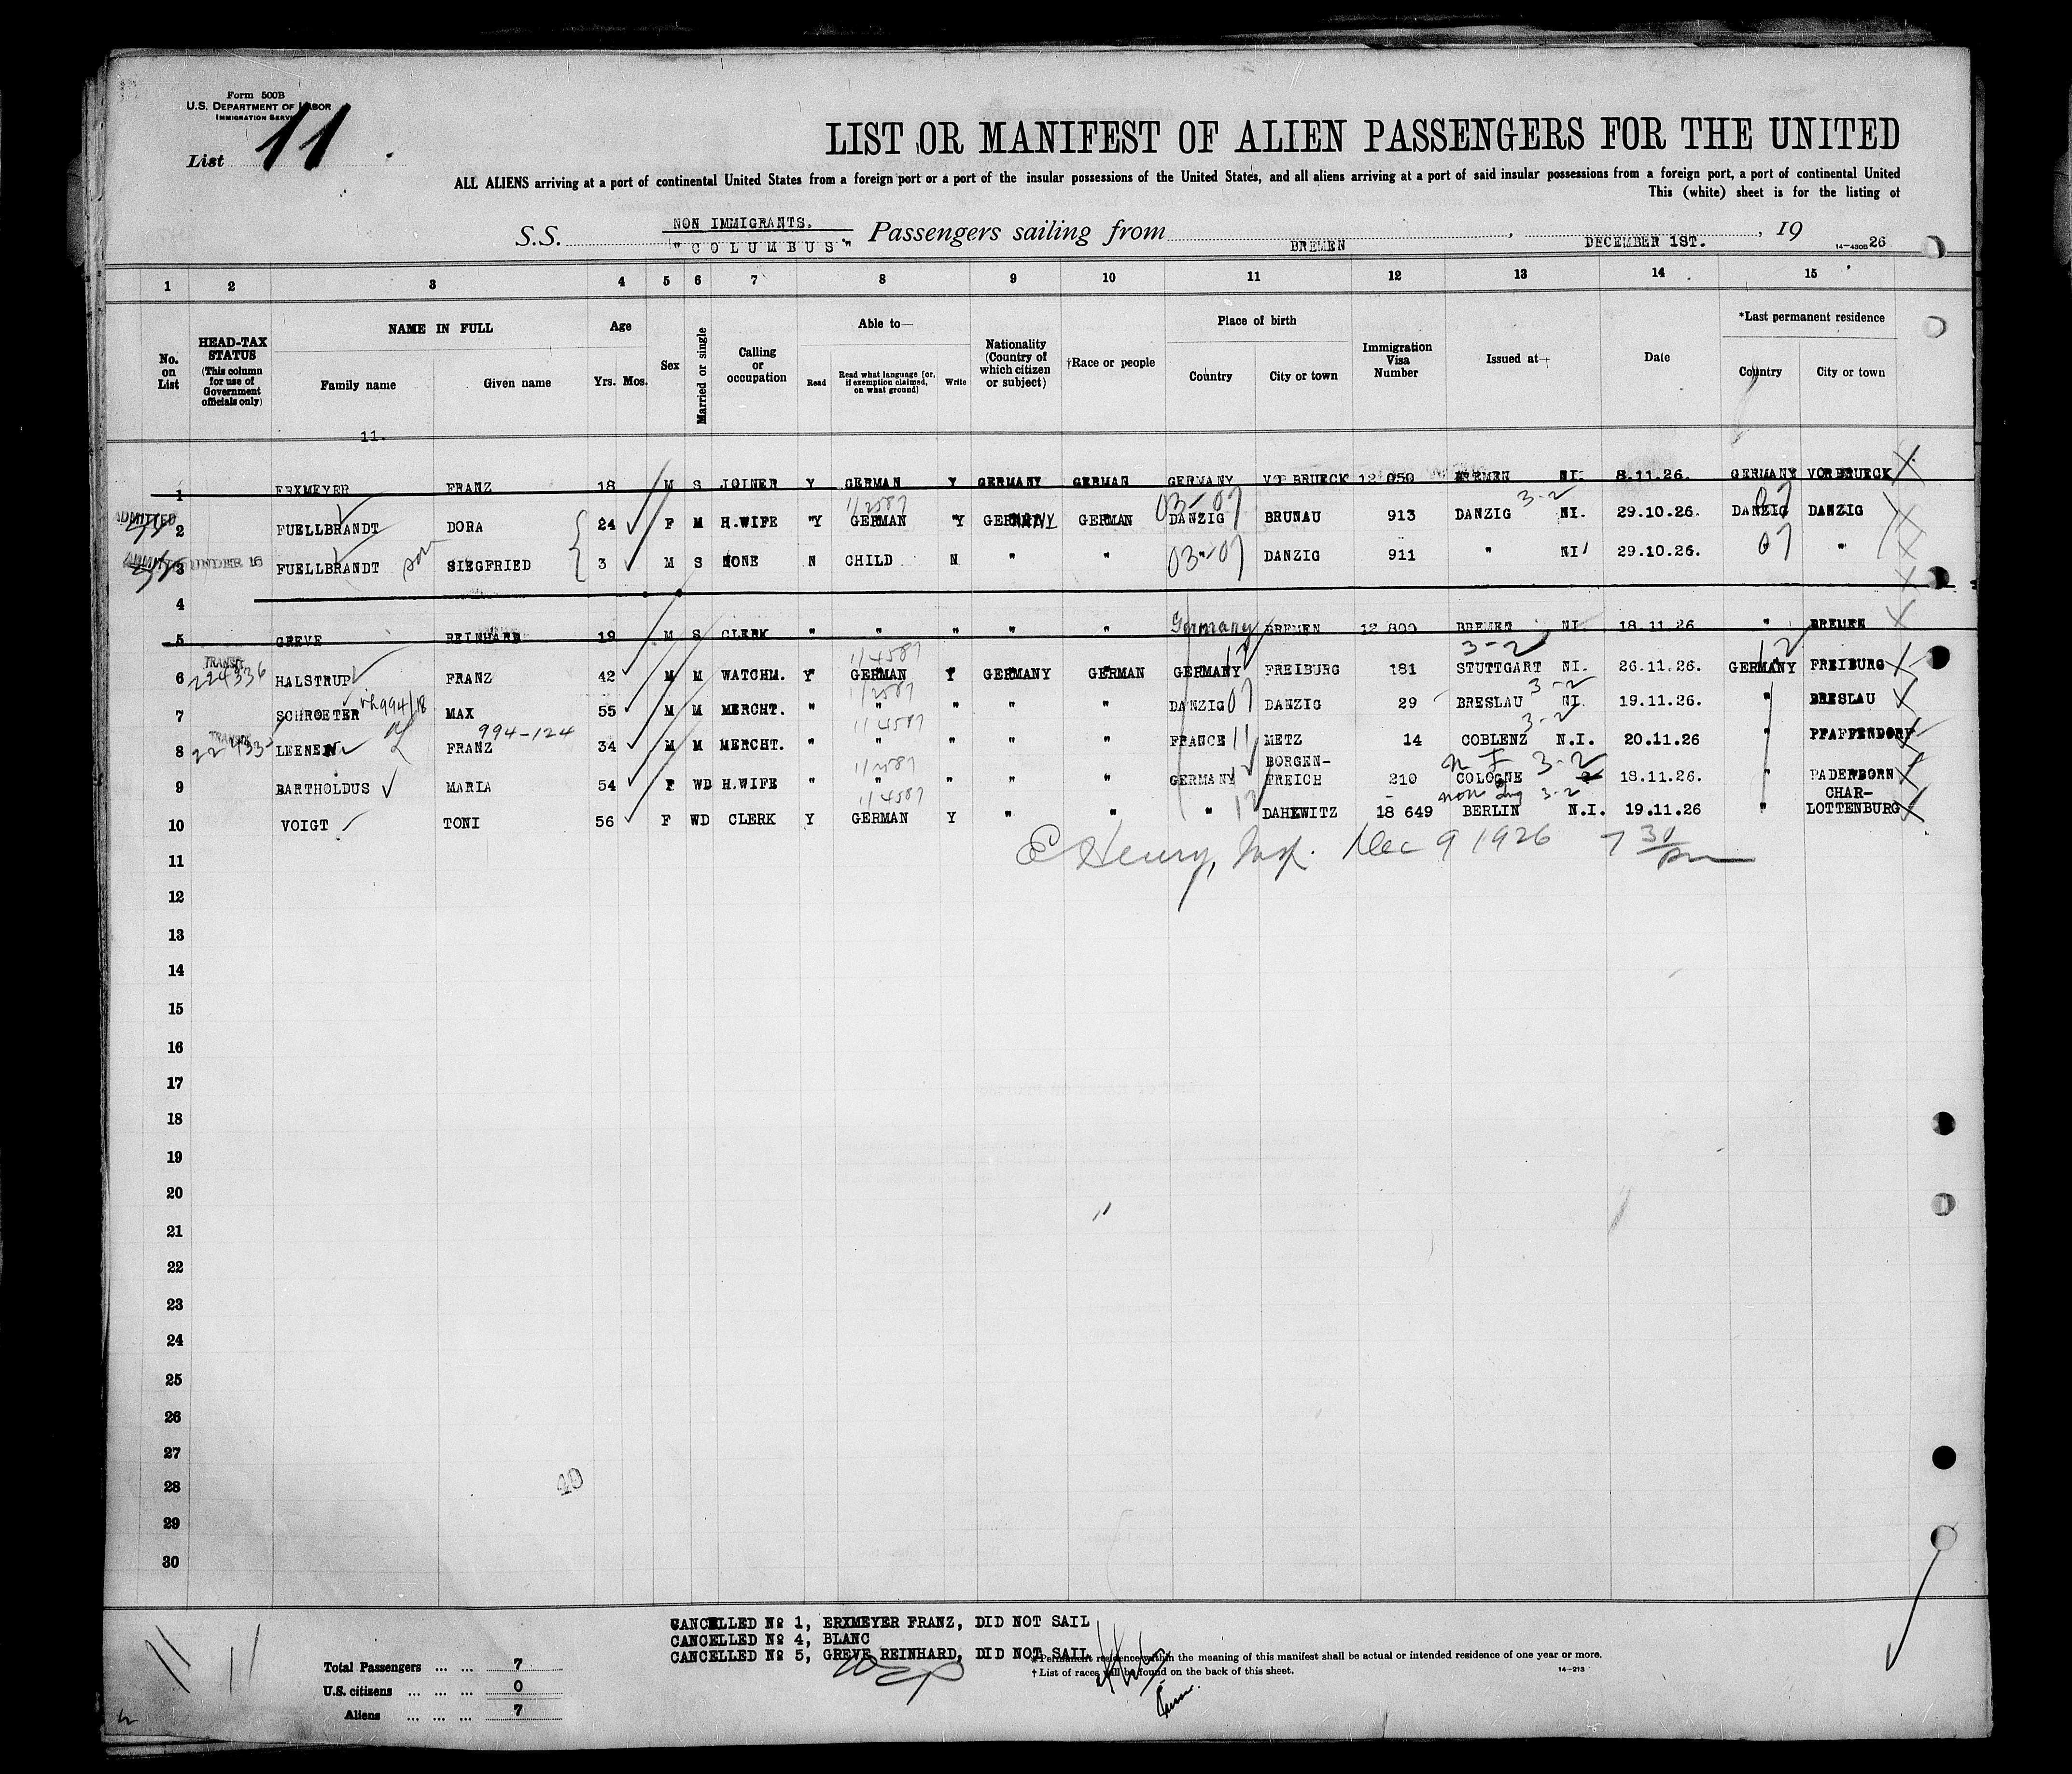 Form 500B
U.S. DEPARTMENT OF LABOR
IMMIGRATION SERVICE
List 11
LIST OR MANIFEST OF ALIEN PASSENGERS FOR THE UNITED
ALL ALIENS arriving at a port of continental United States from a foreign port or a port of the insular possessions of the United States, and all aliens arriving at a port of said insular possessions from a foreign port, a port of continental United
This (white) sheet is for the listing of
NON IMMIGRANTS.
S.S. "COLUMBUS" Passengers sailing from BREMEN, DECEMBER 1ST., 19 26
14-430B
1 2 3 4 5 6 7 8 9 10 11 12 13 14 15
No. on List
HEAD-TAX STATUS (This column for use of Government officials only)
NAME IN FULL
Family name Given name
Age
Yrs. Mos.
Sex
Married or single
Calling or occupation
Able to—
Read Read what language (or, if exemption claimed, on what ground) Write
Nationality (Country of which citizen or subject)
†Race or people
Place of birth
Country City or town
Immigration Visa Number
Issued at—
Date
*Last permanent residence
Country City or town
11.
1 ERXMEYER FRANZ 18 M S JOINER Y GERMAN Y GERMANY GERMAN GERMANY VORBRUECK 12 050 BREMEN NI. 8.11.26. GERMANY VORBRUECK
11/2587 03-07 3-2 07
ADMITTED 2 FUELLBRANDT DORA 24 F M H.WIFE Y GERMAN Y GERMANY GERMAN DANZIG BRUNAU 913 DANZIG NI. 29.10.26. DANZIG DANZIG
3 UNDER 16 FUELLBRANDT son SIEGFRIED 3 M S NONE N CHILD N " " " 03-07 DANZIG 911 " NI 29.10.26. 07 "
4
5 GREVE REINHARD 19 M S CLERK " " " " " Germany BREMEN 12 800 BREMEN NI. 18.11.26 " BREMEN
TRANSIT 224336 11/4587 12 3-2 12
6 HALSTRUP FRANZ 42 M M WATCHM. Y GERMAN Y GERMANY GERMAN GERMANY FREIBURG 181 STUTTGART NI. 26.11.26. GERMANY FREIBURG
994/18 11/2587 3-2
7 SCHROETER MAX 55 M M MERCHT. " " " " " DANZIG 07 DANZIG 29 BRESLAU NI. 19.11.26. " BRESLAU
TRANSIT 994-124 11/4587 3-2
8 LEENEN FRANZ 34 M M MERCHT. " " " " " FRANCE 11 METZ 14 COBLENZ N.I. 20.11.26 " PFAFFENDORF
9 BARTHOLDUS MARIA 54 F WD H.WIFE " " " " " GERMANY BORGEN-FREICH 210 COLOGNE 3-2 18.11.26. " PADERBORN
11/4587 12 3-2
10 VOIGT TONI 56 F WD CLERK Y GERMAN Y " " " DAHEWITZ 18 649 BERLIN N.I. 19.11.26 " CHAR-LOTTENBURG
E Henry, Insp. Dec 9 1926 7 30/pm
11
12
13
14
15
16
17
18
19
20
21
22
23
24
25
26
27
28
29
30
49
CANCELLED № 1, ERXMEYER FRANZ, DID NOT SAIL
CANCELLED № 4, BLANC
CANCELLED № 5, GREVE REINHARD, DID NOT SAIL
Total Passengers ... ... 7
U.S. citizens ... ... ... 0
Aliens ... ... ... 7
*Permanent residence within the meaning of this manifest shall be actual or intended residence of one year or more.
† List of races will be found on the back of this sheet.
14-213